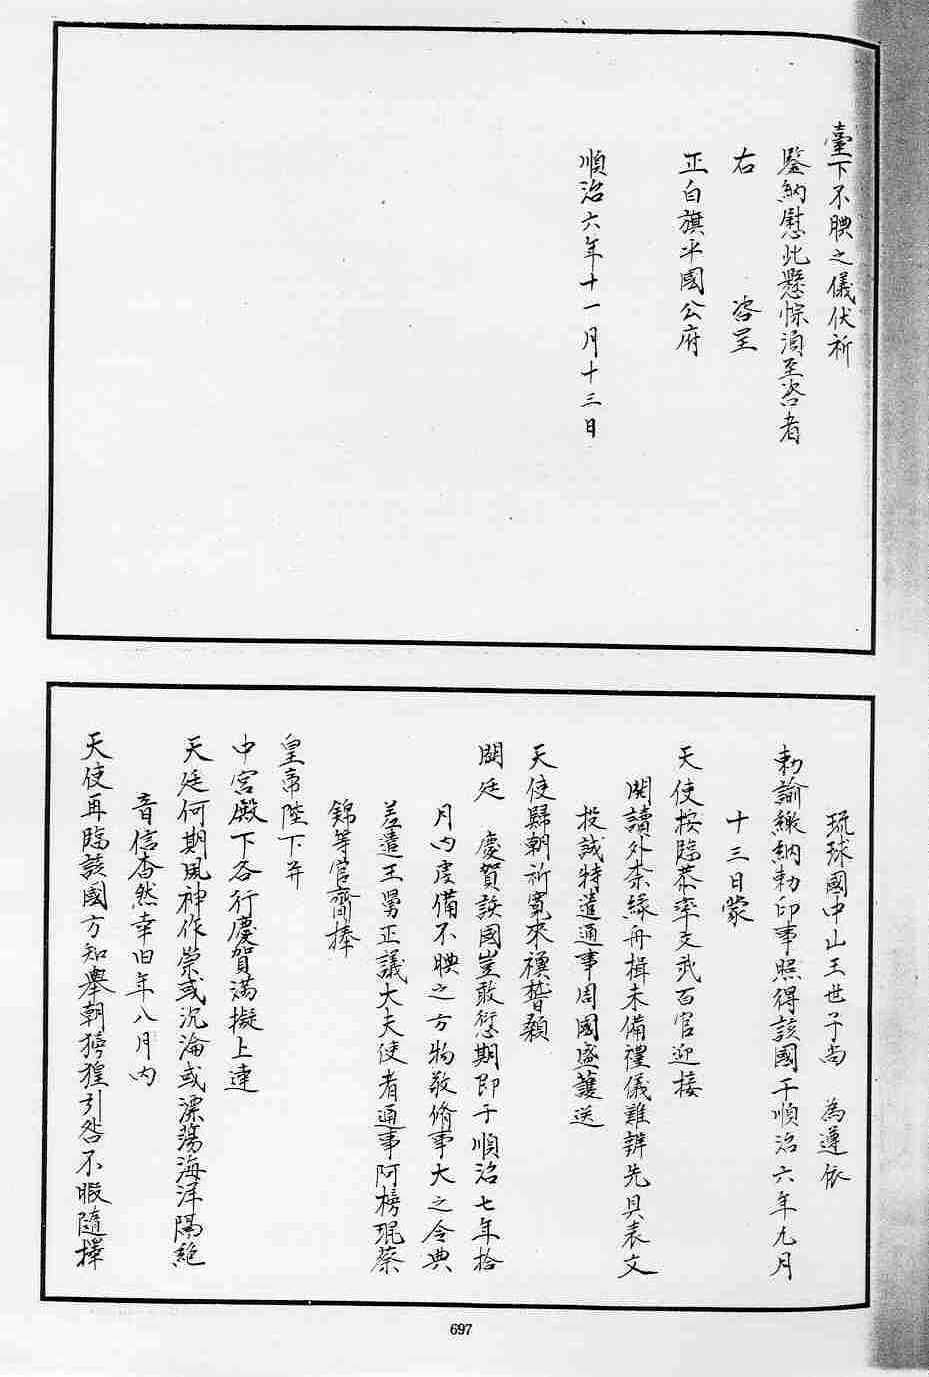 臺下不腆之儀伏祈
鑒納慰此懸悰須至咨者
右　咨呈
正白旗平國公府
順治六年十一月十三日
琉球國中山王世子尚　為遵依
勅諭繳納勅印事照得該國于順治六年九月
十三日蒙
天使按臨恭率文武百官迎接
開讀外柰緣舟楫未備禮儀難辨先具表文
投誠特遣通事周國盛護送
天使歸朝祈寬來禩嵇顙
闕廷　慶賀該國豈敢愆期即于順治七年拾
月內虔備不腆之方物敬脩事大之令典
差遣王舅正議大夫使者通事阿榜琨蔡
錦等官齎捧
皇帝陛下并
中宮殿下各行慶賀滿擬上達
天廷何期風神作祟或沉淪或漂蕩海洋隔絕
音信杳然幸旧年八月內
天使再臨該國方知舉朝徬徨引咎不暇隨擇
697